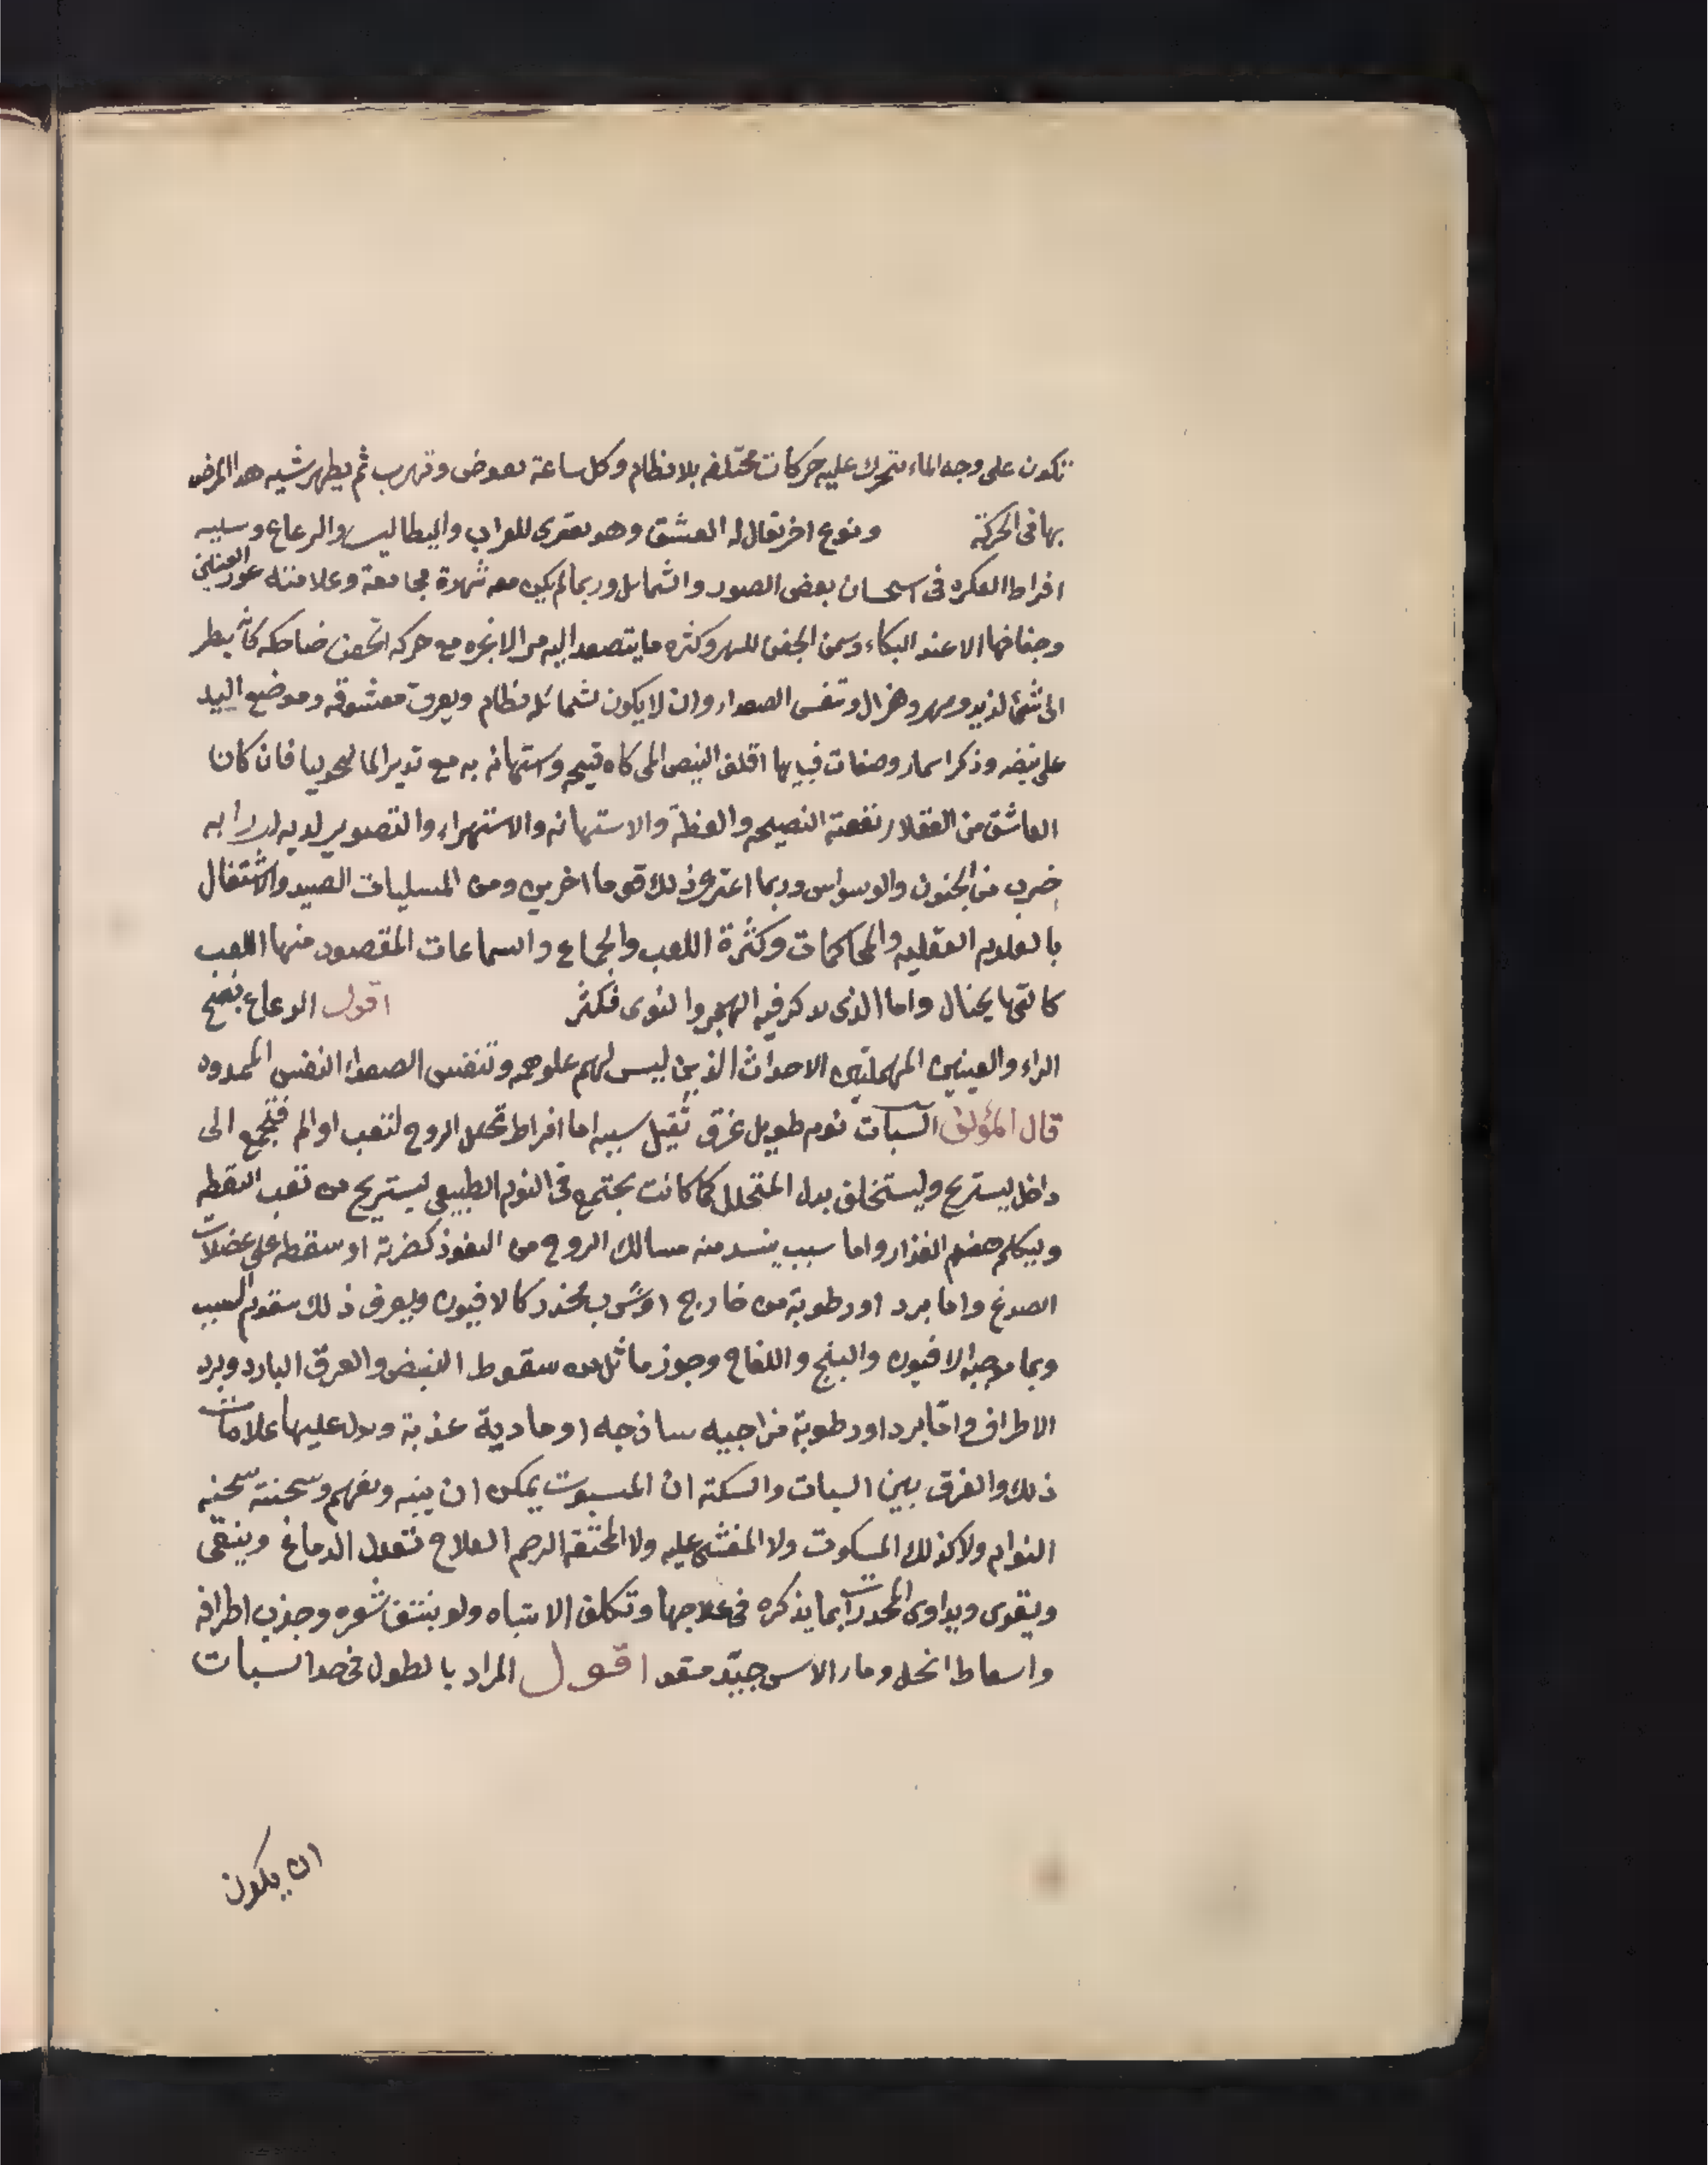 تكون على وجه الماء تتحرك عليه حركات مختلفه بلا نظام وكل ساعة تعوض وتهرب ثم يظهر شبه هدا المرض
بها فى الحركة ونوع اخر يقال له العشق وهو يعترى للعزاب والبطالين والرعاع وسببه
افراط الفكره فى استحسان بعض الصور والشمائل وربما لم يكن معه شهوة مجامعة وعلامته غور العينين
وجفافها الا عند البكاء وسمن الجفن للسهر وكثره ما يتصعد اليه من الابخره مع حركه الجفن ضاحكه كانه ينظر
الى شئ لذيذ وسهر وهزال وتنفس الصعداء وان لا يكون لشمائله نظام ويعرف معشوقه بوضع اليد
على نبضه وذكر اسماء وصفات فايها اختلف النبض
العاشق من العقلاء نفعته النصيحه والعظة والاستهانه والاستهزاء والتصوير لديه ان ما به
ضرب من الجنون والوسواس وربما اغترى ذلك قوما اخرين ومن المسليات الصيد والاشتغال
بالعلوم العقليه والمحاكمات وكثرة اللعب والجماع والسماعات المقصود منها اللعب
كالتى بها يخال واما الذى يذكر فيه الهجر والنوى فكثر اقول الرعاع بفتح
الراء والعينين المهملتين الاحداث الذين ليس لهم علو همه وتنفس الصعداء النفس الممدود
قال المؤلف السبات نوم طويل غرق ثقيل سببه اما افراط تحلل الروح لتعب او الم فتجمع الى
داخل ليستريح وليستخلف بدل المتحلل كما كانت يجتمع فى النوم الطبيعى ليستريح من تعب اليقظه
وليكلم هضم الغذاء واما سبب ينسد منه مسالك الروح من النفوذ كضربة او سقطه على عضلات
الصدغ واما برد او رطوبة من خارج او شرب مخدر كالافيون ويعرف ذلك بتقدم السبب
وبما يوجبه الافيون والبنج واللفاح وجوز ماثل من سقوط النبض والعرق البارد وبرد
الاطراف واما برد او رطوبة مزاجيه ساذجه او مادية عذبة ويدل عليها علامات
ذلك والفرق بين السبات والسكته ان المسبوت يمكن ان ينبه ويفهم وسحنته سحنه
النوام ولا كذلك المسكوت ولا المغشى عليه ولا المختنقة الرحم العلاج تعدل الدماغ وينقى
ويقوى ويداوى المخدرات بما يذكره فى علاجها وتكلف الانتباه ولو بنتف شعره وجذب اطرافه
واسعاط الخل وماء الاس جيد مقو اقول المراد بالطول فى حد السبات
ان يكون